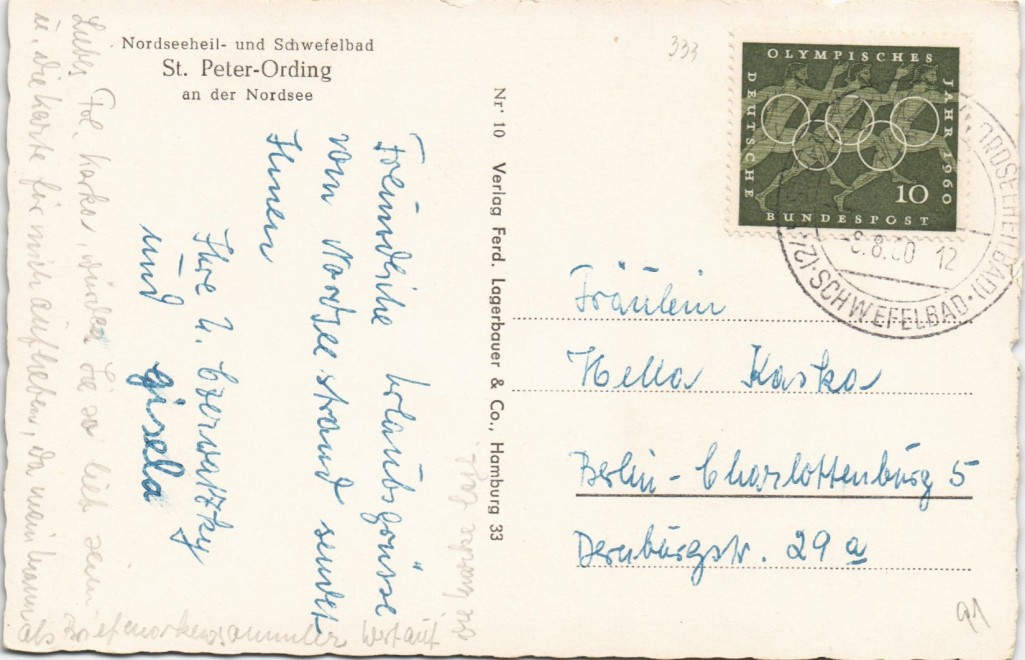 Nordseeheil- und Schwefelbad
St. Peter-Ording
an der Nordsee
Freundliche Urlaubsgrüsse
vom Nordseestrand sendet
Ihnen
Ihre U. Czerwatzky
und Gisela
Liebes Frl. Kaska, würden Sie so lieb sein
u. die Karte für mich aufheben, da mein Mann
als Briefmarkensammler Wert auf
die Marke legt.
Nr. 10 Verlag Ferd. Lagerbauer & Co., Hamburg 33
333
OLYMPISCHES
JAHR 1960
DEUTSCHE
BUNDESPOST
10
NORDSEEHEILBAD
SCHWEFELBAD
9.8.60 12
Fräulein
Hella Kaska
Berlin-Charlottenburg 5
Dernburgstr. 29 a
91